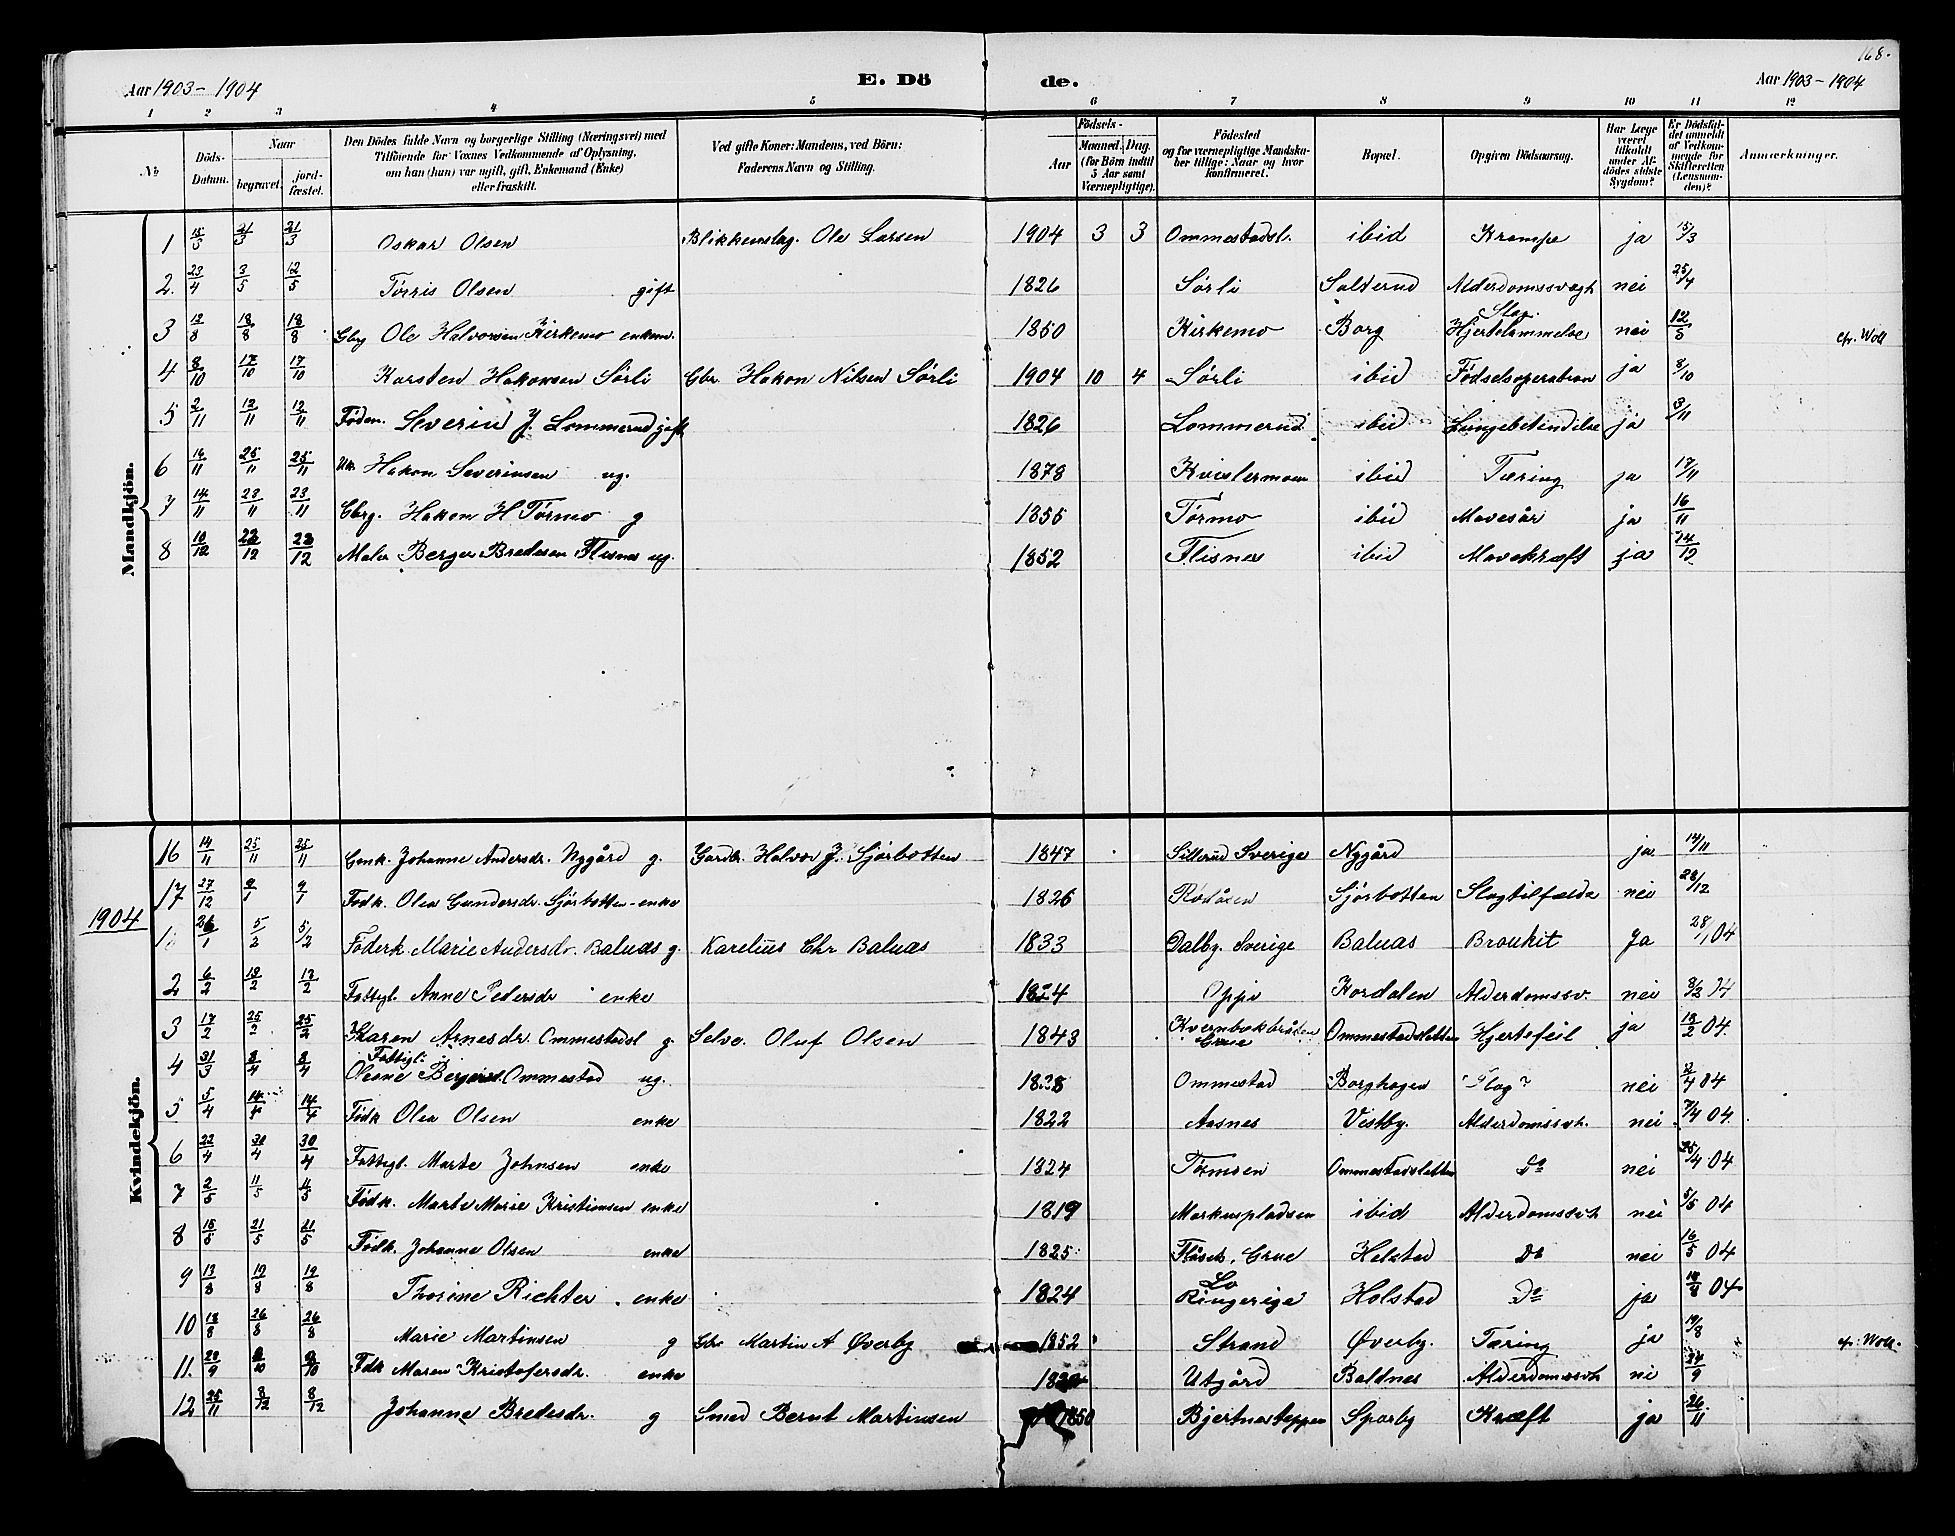 168.
Aar 1903 - 1904 E. Dö de. Aar 1903 - 1904
1 2 3 4 5 6 7 8 9 10 11 12
No Döds-Datum. Naar begravet. jord-fæstet. Den Dödes fulde Navn og borgerlige Stilling (Næringsvei) med Tilföiende for Voxnes Vedkommende af Oplysning, om han (hun) var ugift, gift, Enkemand (Enke) eller fraskilt. Ved gifte Koner: Mandens, ved Börn: Faderens Navn og Stilling. Födsels- Aar Maaned. Dag. (for Börn indtil 5 Aar samt Værnepligtige). Födested og for værnepligtige Mandskaber tillige: Naar og hvor konfirmeret. Bopæl. Opgiven Dödsaarsag. Har Læge været tilkaldt under Afdödes sidste Sygdom? Er Dödsfaldet anmeldt af Vedkommende for Skifteretten (Lensmanden)? Anmærkninger.
Mandkjön.
1 15/3 21/3 21/3 Oskar Olsen Blikkenslag. Ole Larsen 1904 3 3 Ommestadsl. ibid Krampe ja 15/3
2. 23/4 3/5 12/5 Tørris Olsen gift 1826 Sørli Solderud Alderdomssvagh nei 25/4
3 12/8 18/8 18/8 Gbrg Ole Halvorsen Kirkemo enkem. 1850 Kirkemo Borg Slag. Hjertelammelse nei 12/8 cfr. Woll
4 8/10 17/10 17/10 Karsten Hakonsen Sörli Gbr. Hakon Nilsen Sörli 1904 10 4 Sörli ibid Fødselsoperation ja 8/10
5 2/11 12/11 12/11 Føden. Severin J. Lommerud gift 1826 Lommerud ibid Lungebetændelse ja 3/11
6 14/11 25/11 25/11 Hakon Severinsen ug. 1878 Kvislermoen ibid Tæring ja 17/11
7 14/11 23/11 23/11 Gbrg. Hakon H Tørmo g 1855 Tørmo ibid Mavesår ja 16/11
8 10/12 23/12 23/12 Maler Berger Bredesen Flisnes ug. 1852 Flisnes ibid Mavekræft ja 14/12
Kvindekjön.
16 14/11 25/11 25/11 Gmk. Johanne Andersdr. Nygård g. Gardbr. Halvor J. Sjørbotten 1847 Sillerud Sverige Nygård ja 14/11
17 27/12 9/1 9/1 Fødk. Olea Gundersdr. Sjørbotten - enke 1826 Rodåsen Sjørbotten Slagtilfælde nei 28/12
1904
26/1 5/2 5/2 Føderk Marie Andersdr. Balnäs g. Karelius Chr Balnäs 1833 Dalby. Sverige Balnäs Bronkit Ja 28/1 04
2 6/2 12/2 12/2 Fattigl. Anne Pedersdr enke 1824 Oppi Kordalen Alderdomssv. nei 8/2 04
3 17/2 25/2 25/2 Karen Arnesdr. Ommestadsl g. Selve. Oluf Olsen 1843 Kvernbekbråten Grue Ommestadsletten Hjertefeil ja 18/2 04.
4 31/3 8/4 8/4 Fattigl. Oleane Bergersd. Ommestad ug. 1828 Ommestad Borghagen Slag? nei 2/4 04
5 5/4 14/4 14/4 Fødk Olea Olsen enke 1822 Aasnes Vestby. Alderdomssvh. nei 7/4 04.
6 22/4 30/4 30/4 Fattigl. Marte Johnsen enke 1824 Tørmoen Ommestadsletten Do nei 25/4 04
7 2/5 11/5 11/5 Fødk. Marte Marie Kristiansen enke 1819 Markuspladsen ibid Alderdomssvh nei 5/5 04
8 15/5 21/5 21/5 Fødk. Johanne Olsen enke 1825 Flåset, Grue Holstad Do nei 16/5 04
9 13/8 19/8 19/8 Thorine Richter enke 1824 Lo Ringerige Holstad Do ja 18/8 04
10 18/8 26/8 26/8 Marie Martinsen g Gbr Martin A Øverby 1852 Strand Øverby. Tæring ja 19/8 cfr. Woll.
11. 22/9 9/10 9/10 Fdk Maren Kristofersdr. enke Utgård Baldnes Alderdomssvh nei 24/9
12 25/11 8/12 8/12 Johanne Bredesdr. g Smed Bernt Martinsen 1850 Bjertnesteppen Sparby Kræft ja 26/11